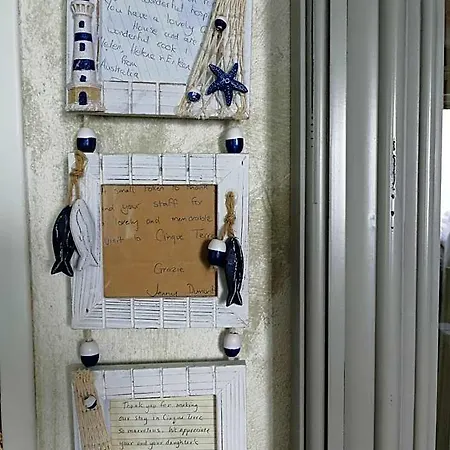 wonderful hosp
You have a lovely
House and are
wonderful cook
Helen, Helena
from
Australia
small token to thank
and your staff for
lovely and memorable
visit to Cinque Terre
Grazie
Jenny
Thank you for making our
stay in Cinque Terre
so marvelous. We appreciate
your and your daughter's